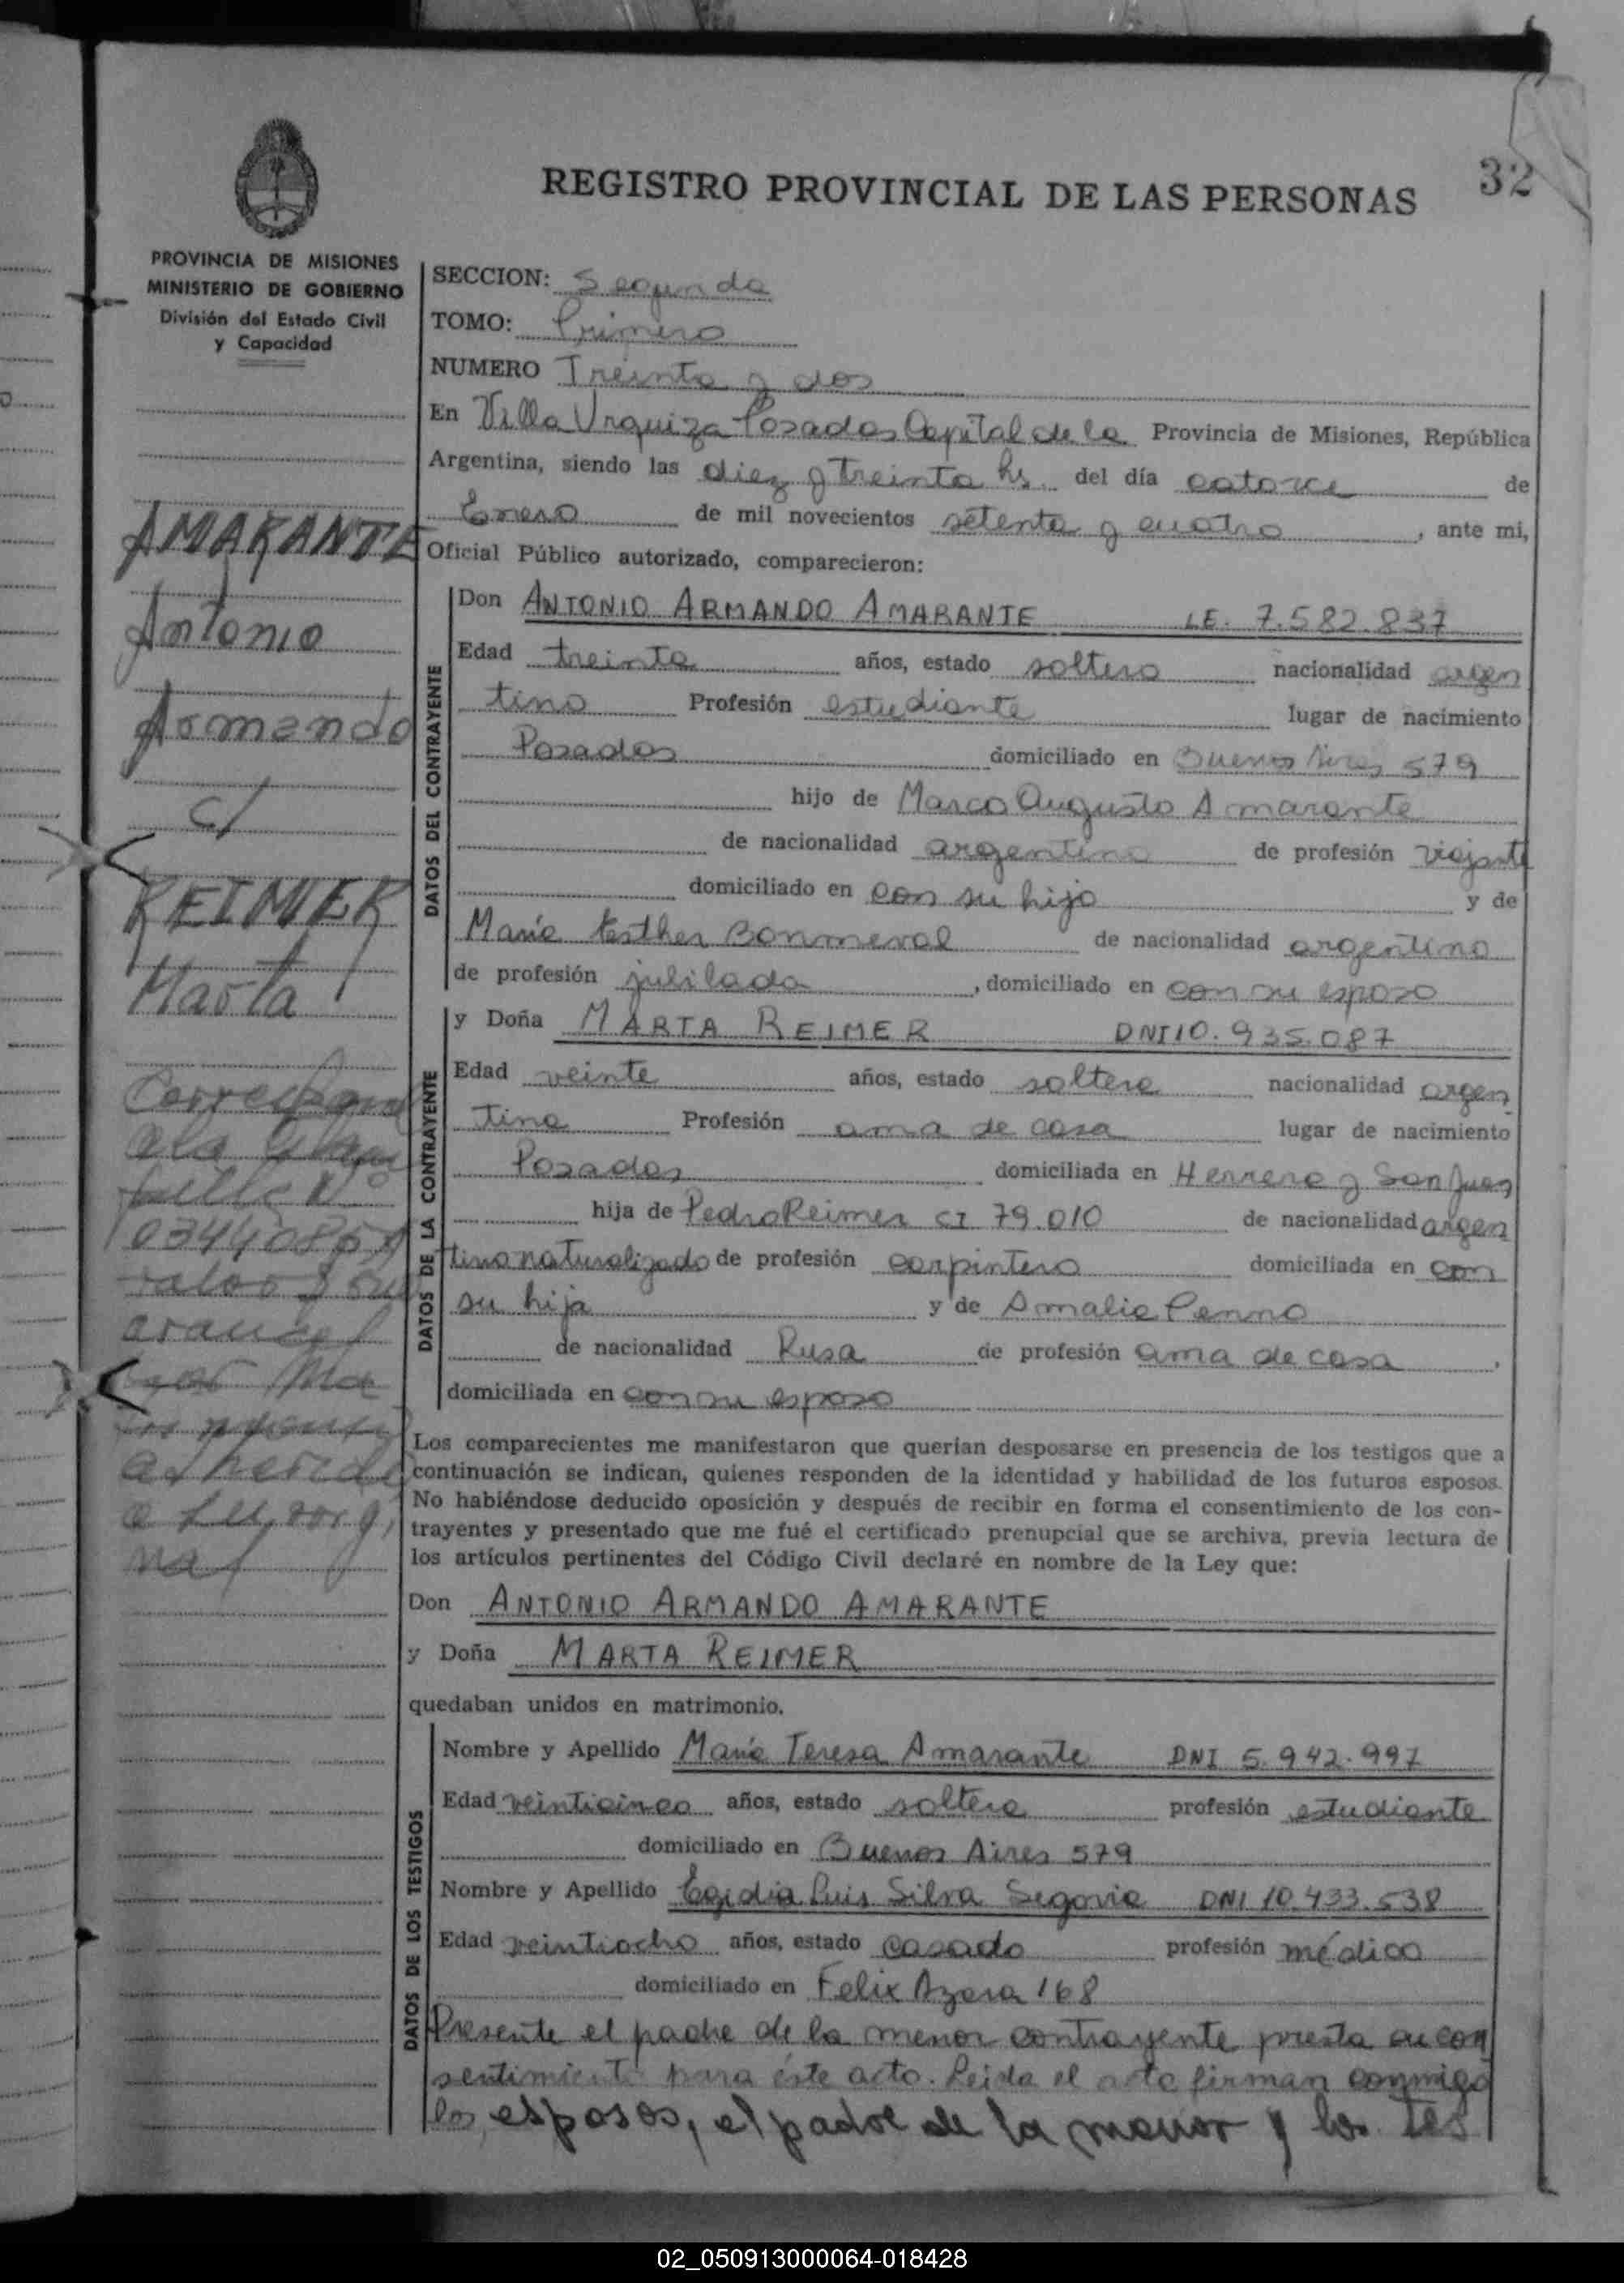 REGISTRO PROVINCIAL DE LAS PERSONAS
32
PROVINCIA DE MISIONES
MINISTERIO DE GOBIERNO
División del Estado Civil
y Capacidad
SECCION: Segunda
TOMO: Primero
NUMERO Treinta y dos
En Villa Urquiza Posadas Capital de la Provincia de Misiones, República
Argentina, siendo las diez y treinta hs. del día catorce de
Enero de mil novecientos setenta y cuatro, ante mi,
Oficial Público autorizado, comparecieron:
AMARANTE
Antonio
Armando
c/
REIMER
Marta
DATOS DEL CONTRAYENTE
Don ANTONIO ARMANDO AMARANTE LE. 7.582.837
Edad treinta años, estado soltero nacionalidad argen
tino Profesión estudiante lugar de nacimiento
Posadas domiciliado en Buenos Aires 579
hijo de Marco Augusto Amarante
de nacionalidad argentina de profesión viajante
domiciliado en con su hijo y de
María Esther Bonmeval de nacionalidad argentina
de profesión jubilada, domiciliado en con su esposo
DATOS DE LA CONTRAYENTE
y Doña MARTA REIMER DNI 10.935.087
Edad veinte años, estado soltera nacionalidad argen
tina Profesión ama de casa lugar de nacimiento
Posadas domiciliada en Herrera y San Juan
hija de Pedro Reimer CI 79.010 de nacionalidad argen
tino naturalizado de profesión carpintero domiciliada en con
su hija y de Amalia Penno
de nacionalidad Rusa de profesión ama de casa,
domiciliada en con su esposo
a la
N°
valor
arancel
adherida
a
nal
Los comparecientes me manifestaron que querían desposarse en presencia de los testigos que a
continuación se indican, quienes responden de la identidad y habilidad de los futuros esposos.
No habiéndose deducido oposición y después de recibir en forma el consentimiento de los con-
trayentes y presentado que me fué el certificado prenupcial que se archiva, previa lectura de
los artículos pertinentes del Código Civil declaré en nombre de la Ley que:
Don ANTONIO ARMANDO AMARANTE
y Doña MARTA REIMER
quedaban unidos en matrimonio.
DATOS DE LOS TESTIGOS
Nombre y Apellido María Teresa Amarante DNI 5.942.997
Edad veinticinco años, estado soltera profesión estudiante
domiciliado en Buenos Aires 579
Nombre y Apellido Egidia Luis Silva Segovia DNI 10.433.538
Edad veintiocho años, estado casado profesión médico
domiciliado en Felix Azara 168
Presente el padre de la menor contrayente presta su con
sentimiento para éste acto. Leida el acta firman conmigo
los esposos, el padre de la menor y los tes
02_050913000064-018428